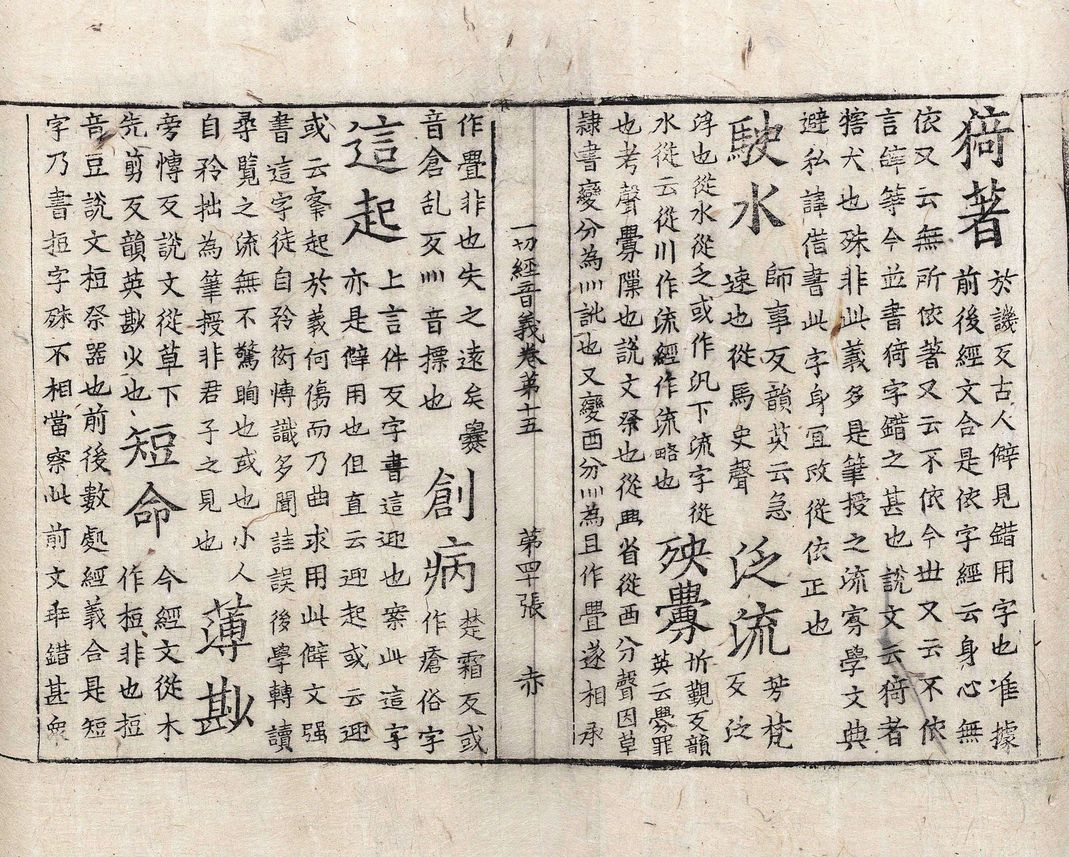 徛著
於譏反古人僻見錯用字也准據
前後經文合是依字經云身心無
依又云無所依著又云不依今世又云不依
言等今並書徛字錯之甚也說文云猗者
犗犬也殊非此義多是筆授之流寡學文典
避私諱借書此字身宜改從依正也
駛水
師事反韻英云急
速也從馬史聲
泛流
芳梵
反泛
浮也從水從乏或作汎下流字從
水從云從川作流經作流略也
殃釁
忻覲反韻
英云釁罪
也考聲釁隟也說文祭也從省從酉分聲因草
隸書變分為灬訛也又變酉分灬為且作舋遂相承
一切經音義卷第十五 第四十張 赤
作舋非也失之遠矣爨
音倉乱反灬音摽也
創病
楚霜反或
作瘡俗字
這起
上言件反字書這迎也案此這字
亦是僻用也但直云迎起或云迎
或云案起於義何傷而乃曲求用此僻文强
書這字徒自矜衒愽識多聞詿誤後學轉讀
尋覽之流無不驚眴也或也小人
自矜拙為筆授非君子之見也
薄尠
旁愽反說文從草下
先剪反韻英尠少也
短命
今經文從木
作梪非也梪
音豆說文梪祭器也前後數處經義合是短
字乃書梪字殊不相當察此前文乖錯甚衆